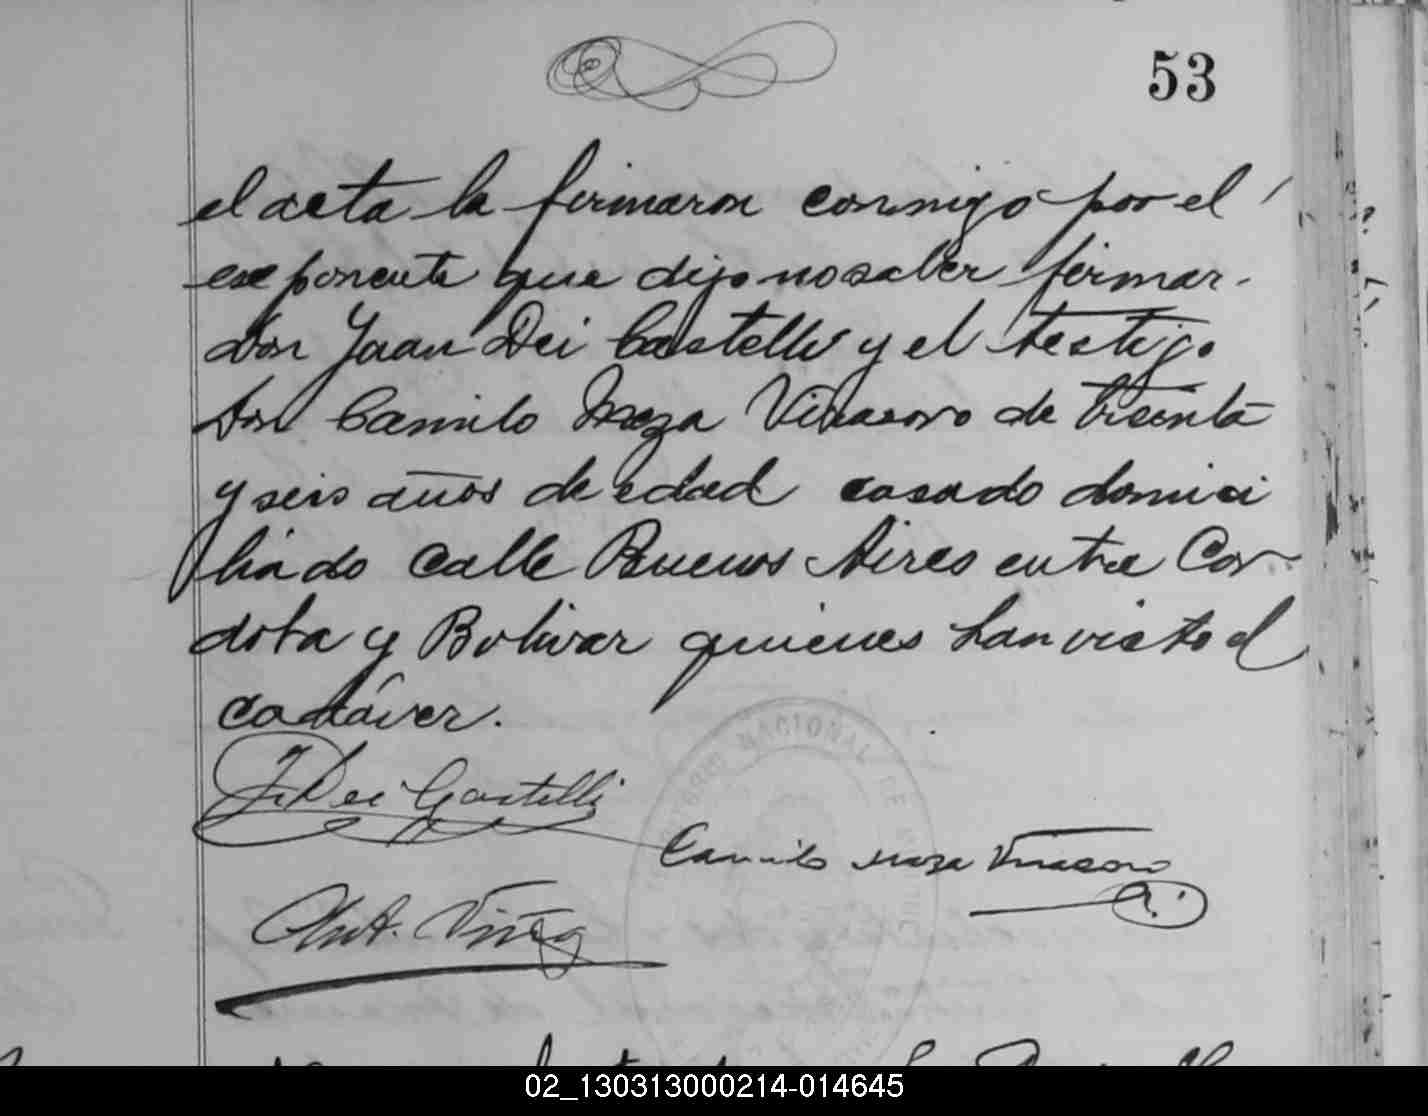 53
el acta la firmaron conmigo por el
exponente que dijo no saber firmar.
Don Juan Dei Castelli y el testigo
Don Camilo Meza Virasoro de treinta
y seis años de edad casado domici
liado calle Buenos Aires entre Cor-
doba y Bolivar quienes han visto el
cadáver.
J. Dei Castelli
Camilo Meza Virasoro
NACIONAL DE
02_130313000214-014645